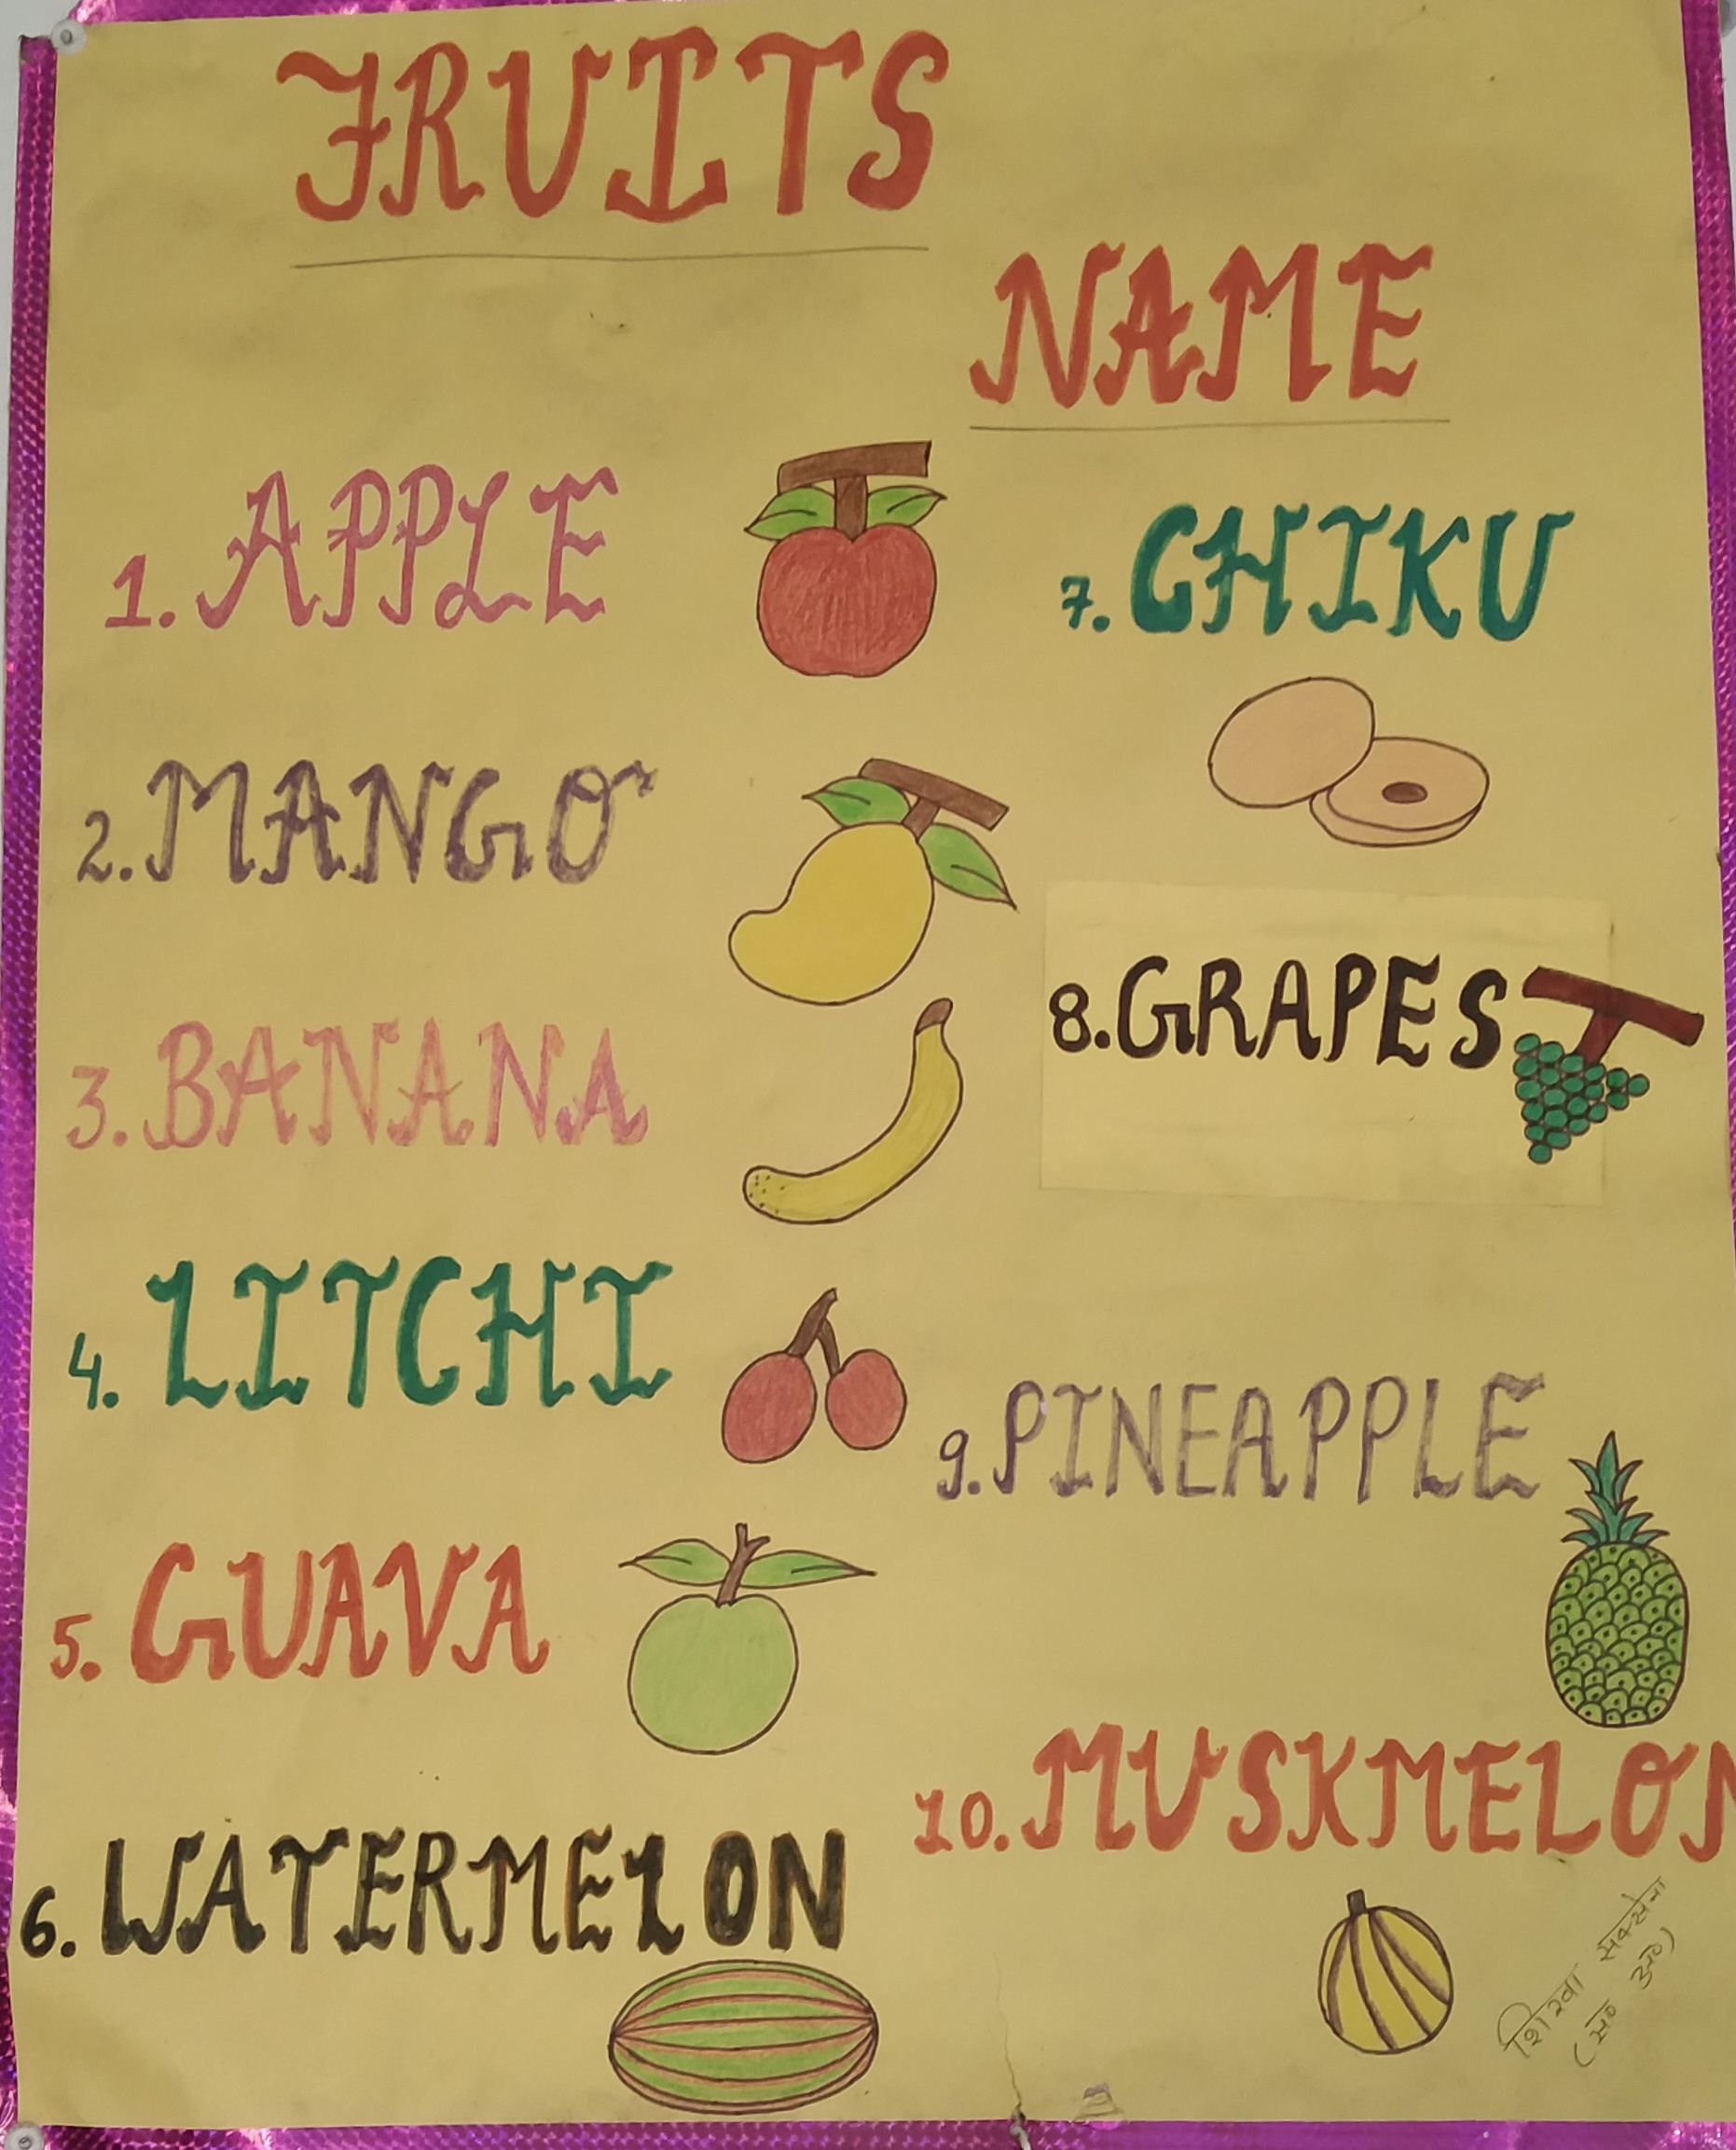 FRUITS
NAME
1. APPLE
2. MANGO
3. BANANA
4. LITCHI
5. GUAVA
6. WATERMELON
7. CHIKU
8. GRAPES
9. PINEAPPLE
10. MUSKMELON
शिखा सक्सेना
(स० अ०)